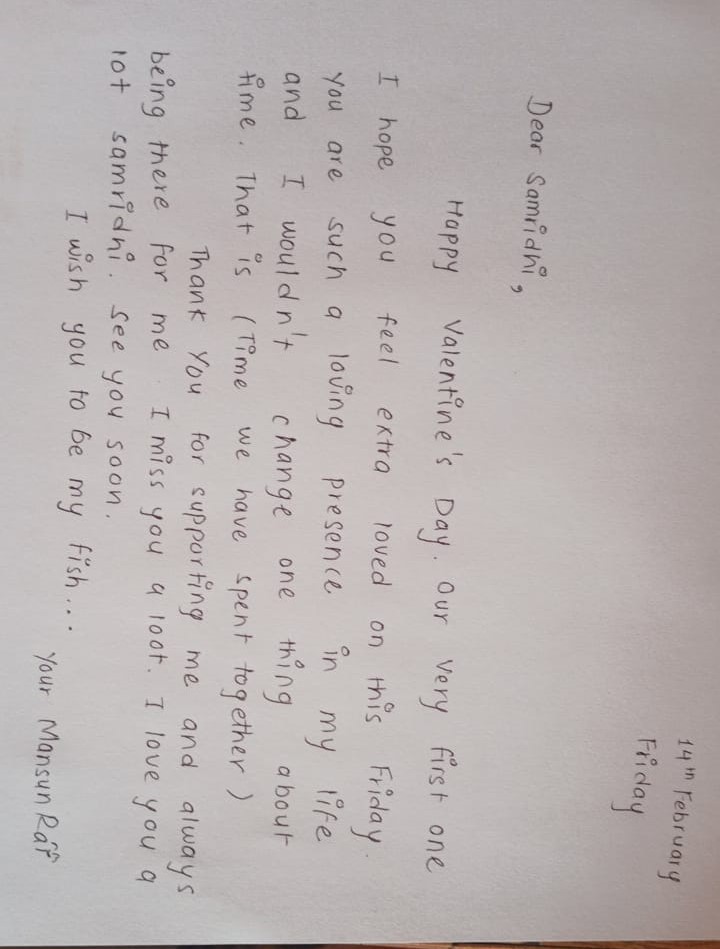 14th February
Friday
Dear Samridhi,
Happy Valentine's Day. Our very first one
I hope you feel extra loved on this Friday.
You are such a loving presence in my life
and I wouldn't change one thing about
time. That is (Time we have spent together)
Thank You for supporting me and always
being there for me. I miss you a loot. I love you a
lot samridhi. See you soon.
I wish you to be my fish...
Your Mansun Rai